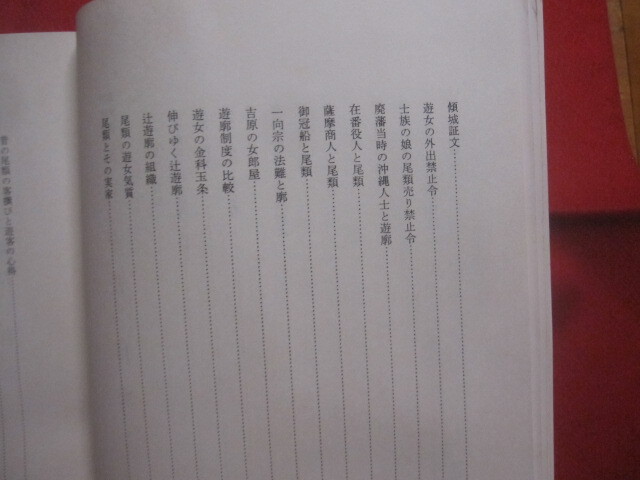 傾城証文
遊女の外出禁止令
士族の娘の尾類売り禁止令
廃藩当時の沖縄人士と遊廓
在番役人と尾類
薩摩商人と尾類
御冠船と尾類
一向宗の法難と廓
吉原の女郎屋
遊廓制度の比較
遊女の金科玉条
伸びゆく辻遊廓
辻遊廓の組織
尾類の遊女気質
尾類とその実家
昔の尾類の客選びと遊客の心得